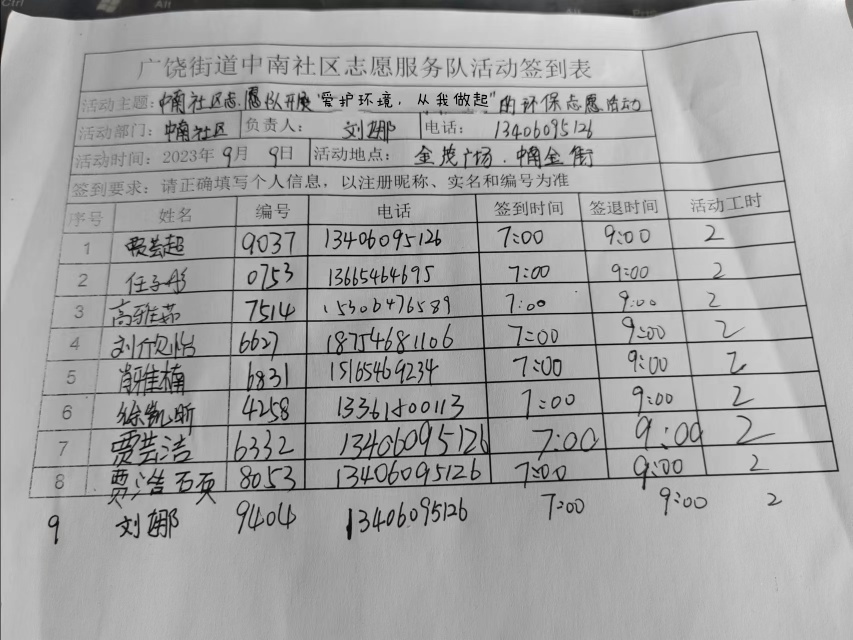 广饶街道中南社区志愿服务队活动签到表
活动主题：中南社区志愿队开展"爱护环境，从我做起"的环保志愿活动
活动部门：中南社区 负责人： 刘娜 电话： 13406095126
活动时间：2023年9月9日 活动地点： 金茂广场．中南金街
签到要求：请正确填写个人信息，以注册昵称、实名和编号为准
序号 姓名 编号 电话 签到时间 签退时间 活动工时
1 贾芸超 9037 13406095126 7:00 9:00 2
2 任子彤 0753 13665464695 7:00 9:00 2
3 高雅茹 7514 15306476589 7:00 9:00 2
4 刘欣怡 6627 18754681106 7:00 9:00 2
5 肖雅楠 6831 15165469234 7:00 9:00 2
6 徐凯昕 4258 13361500113 7:00 9:00 2
7 贾芸洁 6332 13406095126 7:00 9:00 2
8 贾浩硕 8053 13406095126 7:00 9:00 2
9 刘娜 9404 13406095126 7:00 9:00 2